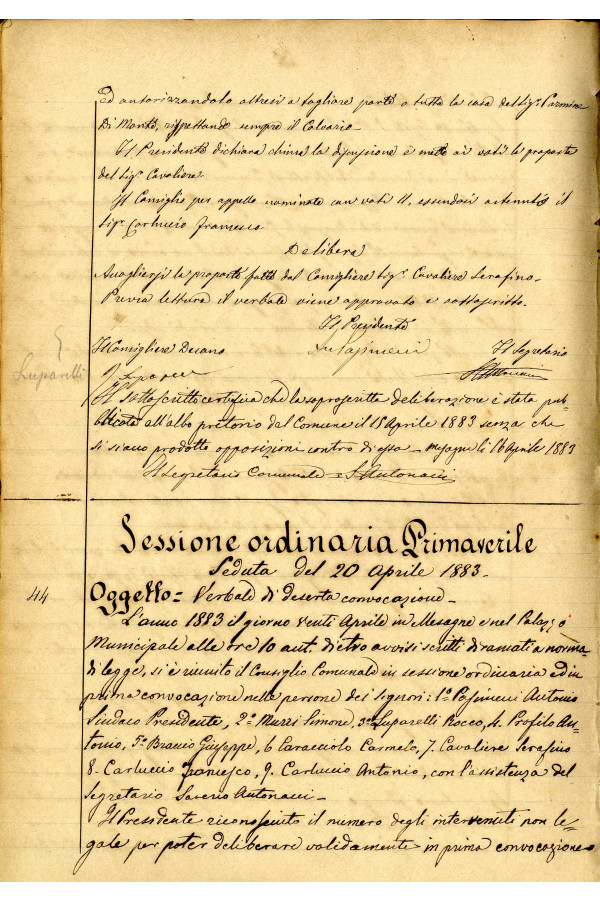 ed autorizzandolo altresì a tagliare parte o tutta la casa del Sig.r Carmine
Di Monte, rispettando sempre il Calvario.
Il Presidente dichiara chiusa la discussione e mette ai voti la proposta
del Sig.r Cavaliere.
Il Consiglio per appello nominale con voti 11, essendosi astenuto il
Sig.r Carluccio Francesco
Delibera
Accogliersi la proposta fatta dal Consigliere Sig.r Cavaliere Serafino.
Previa lettura il verbale viene approvato e sottoscritto.
Il Presidente
Il Consigliere Decano
Il Segretario
Luparelli
Il sottoscritto certifica che la soprascritta deliberazione è stata pub=
blicata all'albo pretorio del Comune il 15 Aprile 1883 senza che
si siano prodotte opposizioni contro di essa — Mesagne li 16 Aprile 1883
Il Segretario Comunale = S. Antonacci
Sessione ordinaria Primaverile
Seduta del 20 Aprile 1883.
44
Oggetto = Verbale di deserta convocazione –
L'anno 1883 il giorno venti Aprile in Mesagne e nel Palazzo
Municipale alle ore 10 ant. dietro avvisi scritti diramati a norma
di legge, si è riunito il Consiglio Comunale in sessione ordinaria ed in
prima convocazione nelle persone dei Signori: 1° Antonio
Sindaco Presidente, 2° Murri Simone, 3° Luparelli Rocco, 4. Profilo An=
tonio, 5° Braccio Giuseppe, 6 Caracciolo Carmelo, 7. Cavaliere Serafino
8. Carluccio Francesco, 9. Carluccio Antonio, con l'assistenza del
Segretario Saverio Antonacci –
Il Presidente riconosciuto il numero degli intervenuti non le=
gale per poter deliberare validamente in prima convocazione